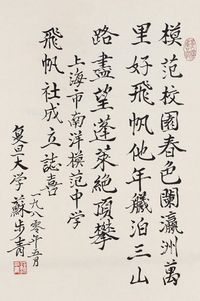 模范校园春色阑瀛洲萬
里好飛帆他年艤泊三山
路盡望蓬莱絶頂攀
上海市南洋模范中学
飛帆社成立誌喜
復旦大学蘇步青
一九八〇年五月